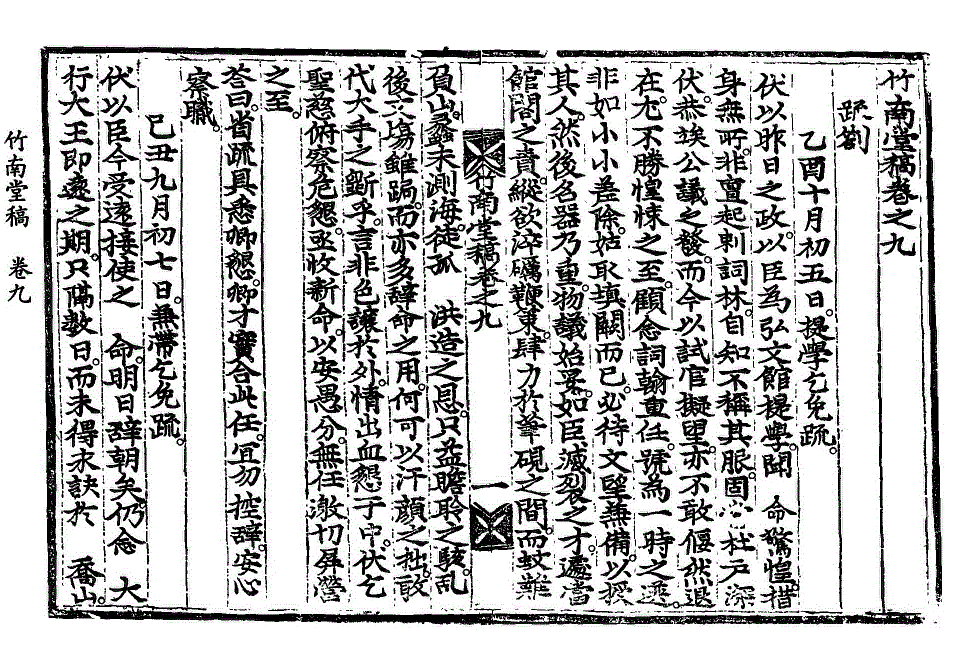 竹南堂稿卷之九
疏劄
乙酉十月初五日。提學乞免疏。
伏以昨日之政以臣爲弘文館提學。聞 命驚惶措
身無所。非直起剌詞林。自知不稱其服。固心杜戶深
伏。恭竢公議之發。而今以試官擬望。亦不敢偃然退
在。尤不勝惶悚之至。顧念詞翰重任。號爲一時之選。
非如小小差除。姑取塡闕而已。必待文望兼備。以授
其人。然後名器乃重。物議始妥。如臣滅裂之才。遽當
館閣之責。縱欲淬礪鞭策。肆力於筆硯之間。而蚊難
竹南堂稿卷之九
一
負山。蠡未測海。徒孤 洪造之恩。只益瞻聆之駭。乱
後文塲雖蹁。而亦多辭命之用。何可以汗顔之拙。敢
代大手之斲乎。言非色讓於外。情出血懇于中。伏乞
聖慈俯察危懇。亟收新命。以安愚分。無任激切屛營
之至。
答曰。省疏具悉卿懇。卿才實合此任。宜勿控辭。安心
察職。
己丑九月初七日。無滯乞免疏。
伏以臣今受遠接使之 命。明日辭朝矣。仍念 大
行大王卽遠之期。只隔數日。而未得永訣於 喬山
竹南堂稿 卷九